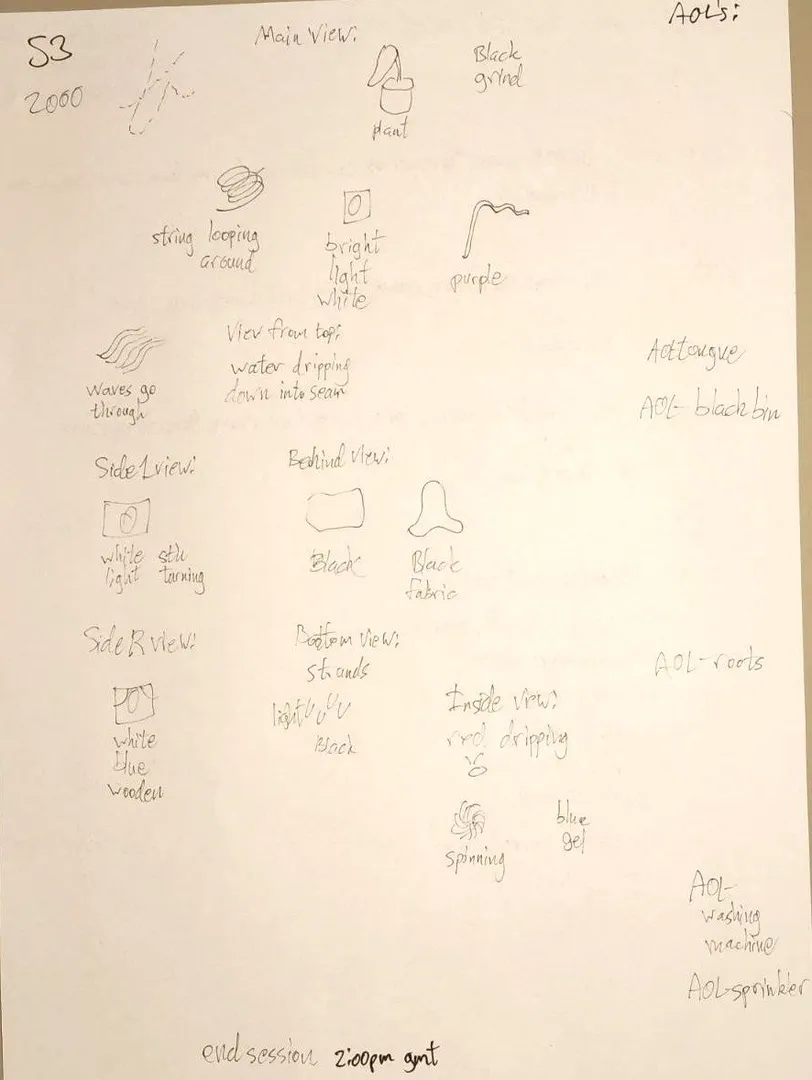 AOL's:
S3
Main View:
2000
Black
grind
plant
string looping
around
bright
light
white
purple
View from top:
water dripping
down into seam
waves go
through
AOL tongue
AOL- black bin
Side L view:
Behind view:
white
light
stu
turning
Black
Black
fabric
Side R view:
Bottom view:
strands
AOL- roots
light
Black
white
blue
wooden
Inside view:
red dripping
spinning
blue
gel
AOL-
washing
machine
AOL-sprinkler
end session 2:00pm gmt